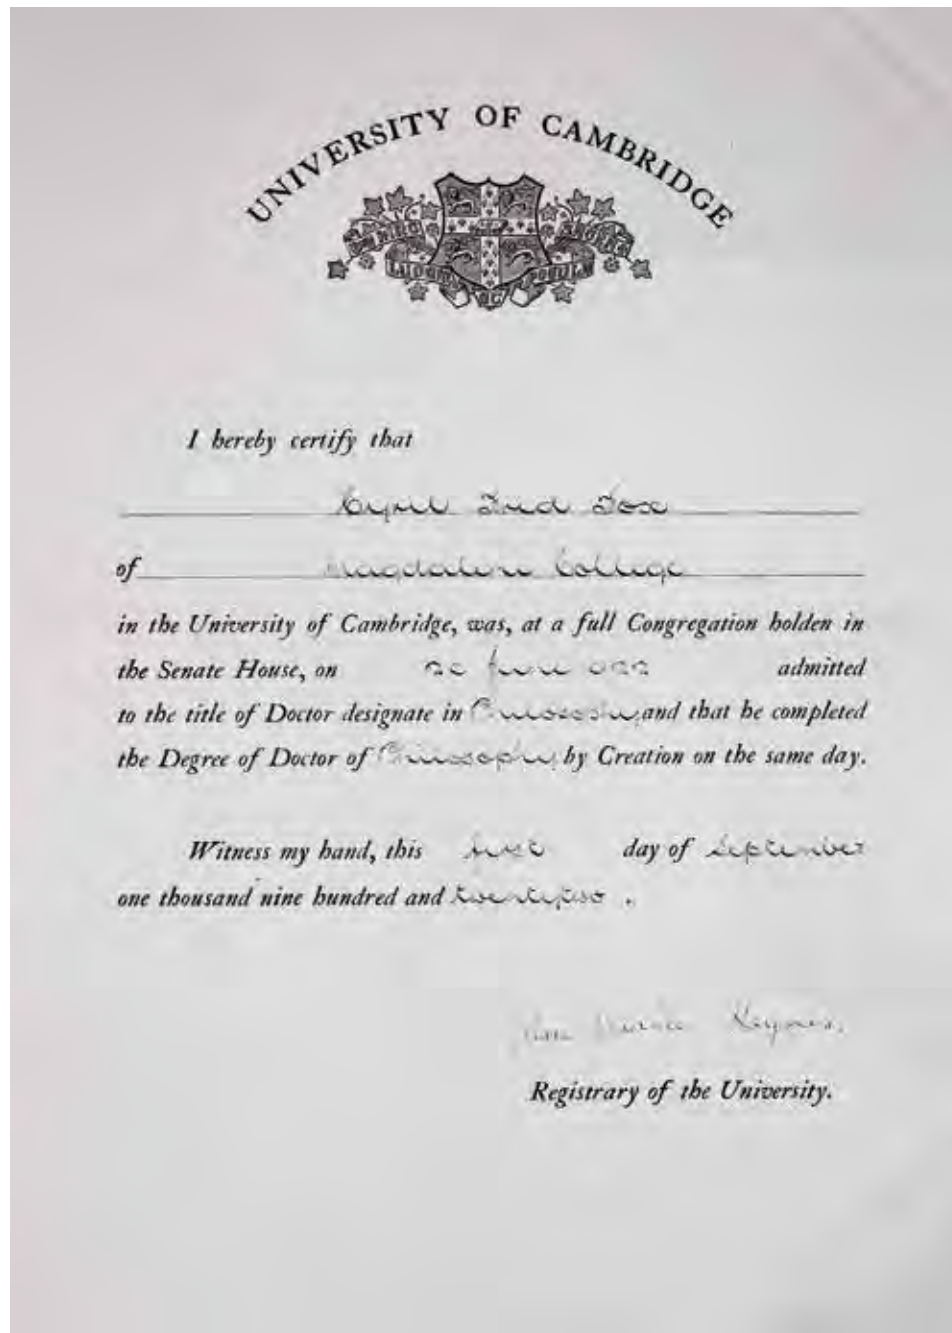 UNIVERSITY OF CAMBRIDGE
I hereby certify that
Cyril Fred Fox
of Magdalene College
in the University of Cambridge, was, at a full Congregation holden in
the Senate House, on June admitted
to the title of Doctor designate in Philosophy, and that he completed
the Degree of Doctor of Philosophy by Creation on the same day.
Witness my hand, this first day of September
one thousand nine hundred and twenty two .
Keynes.
Registrary of the University.